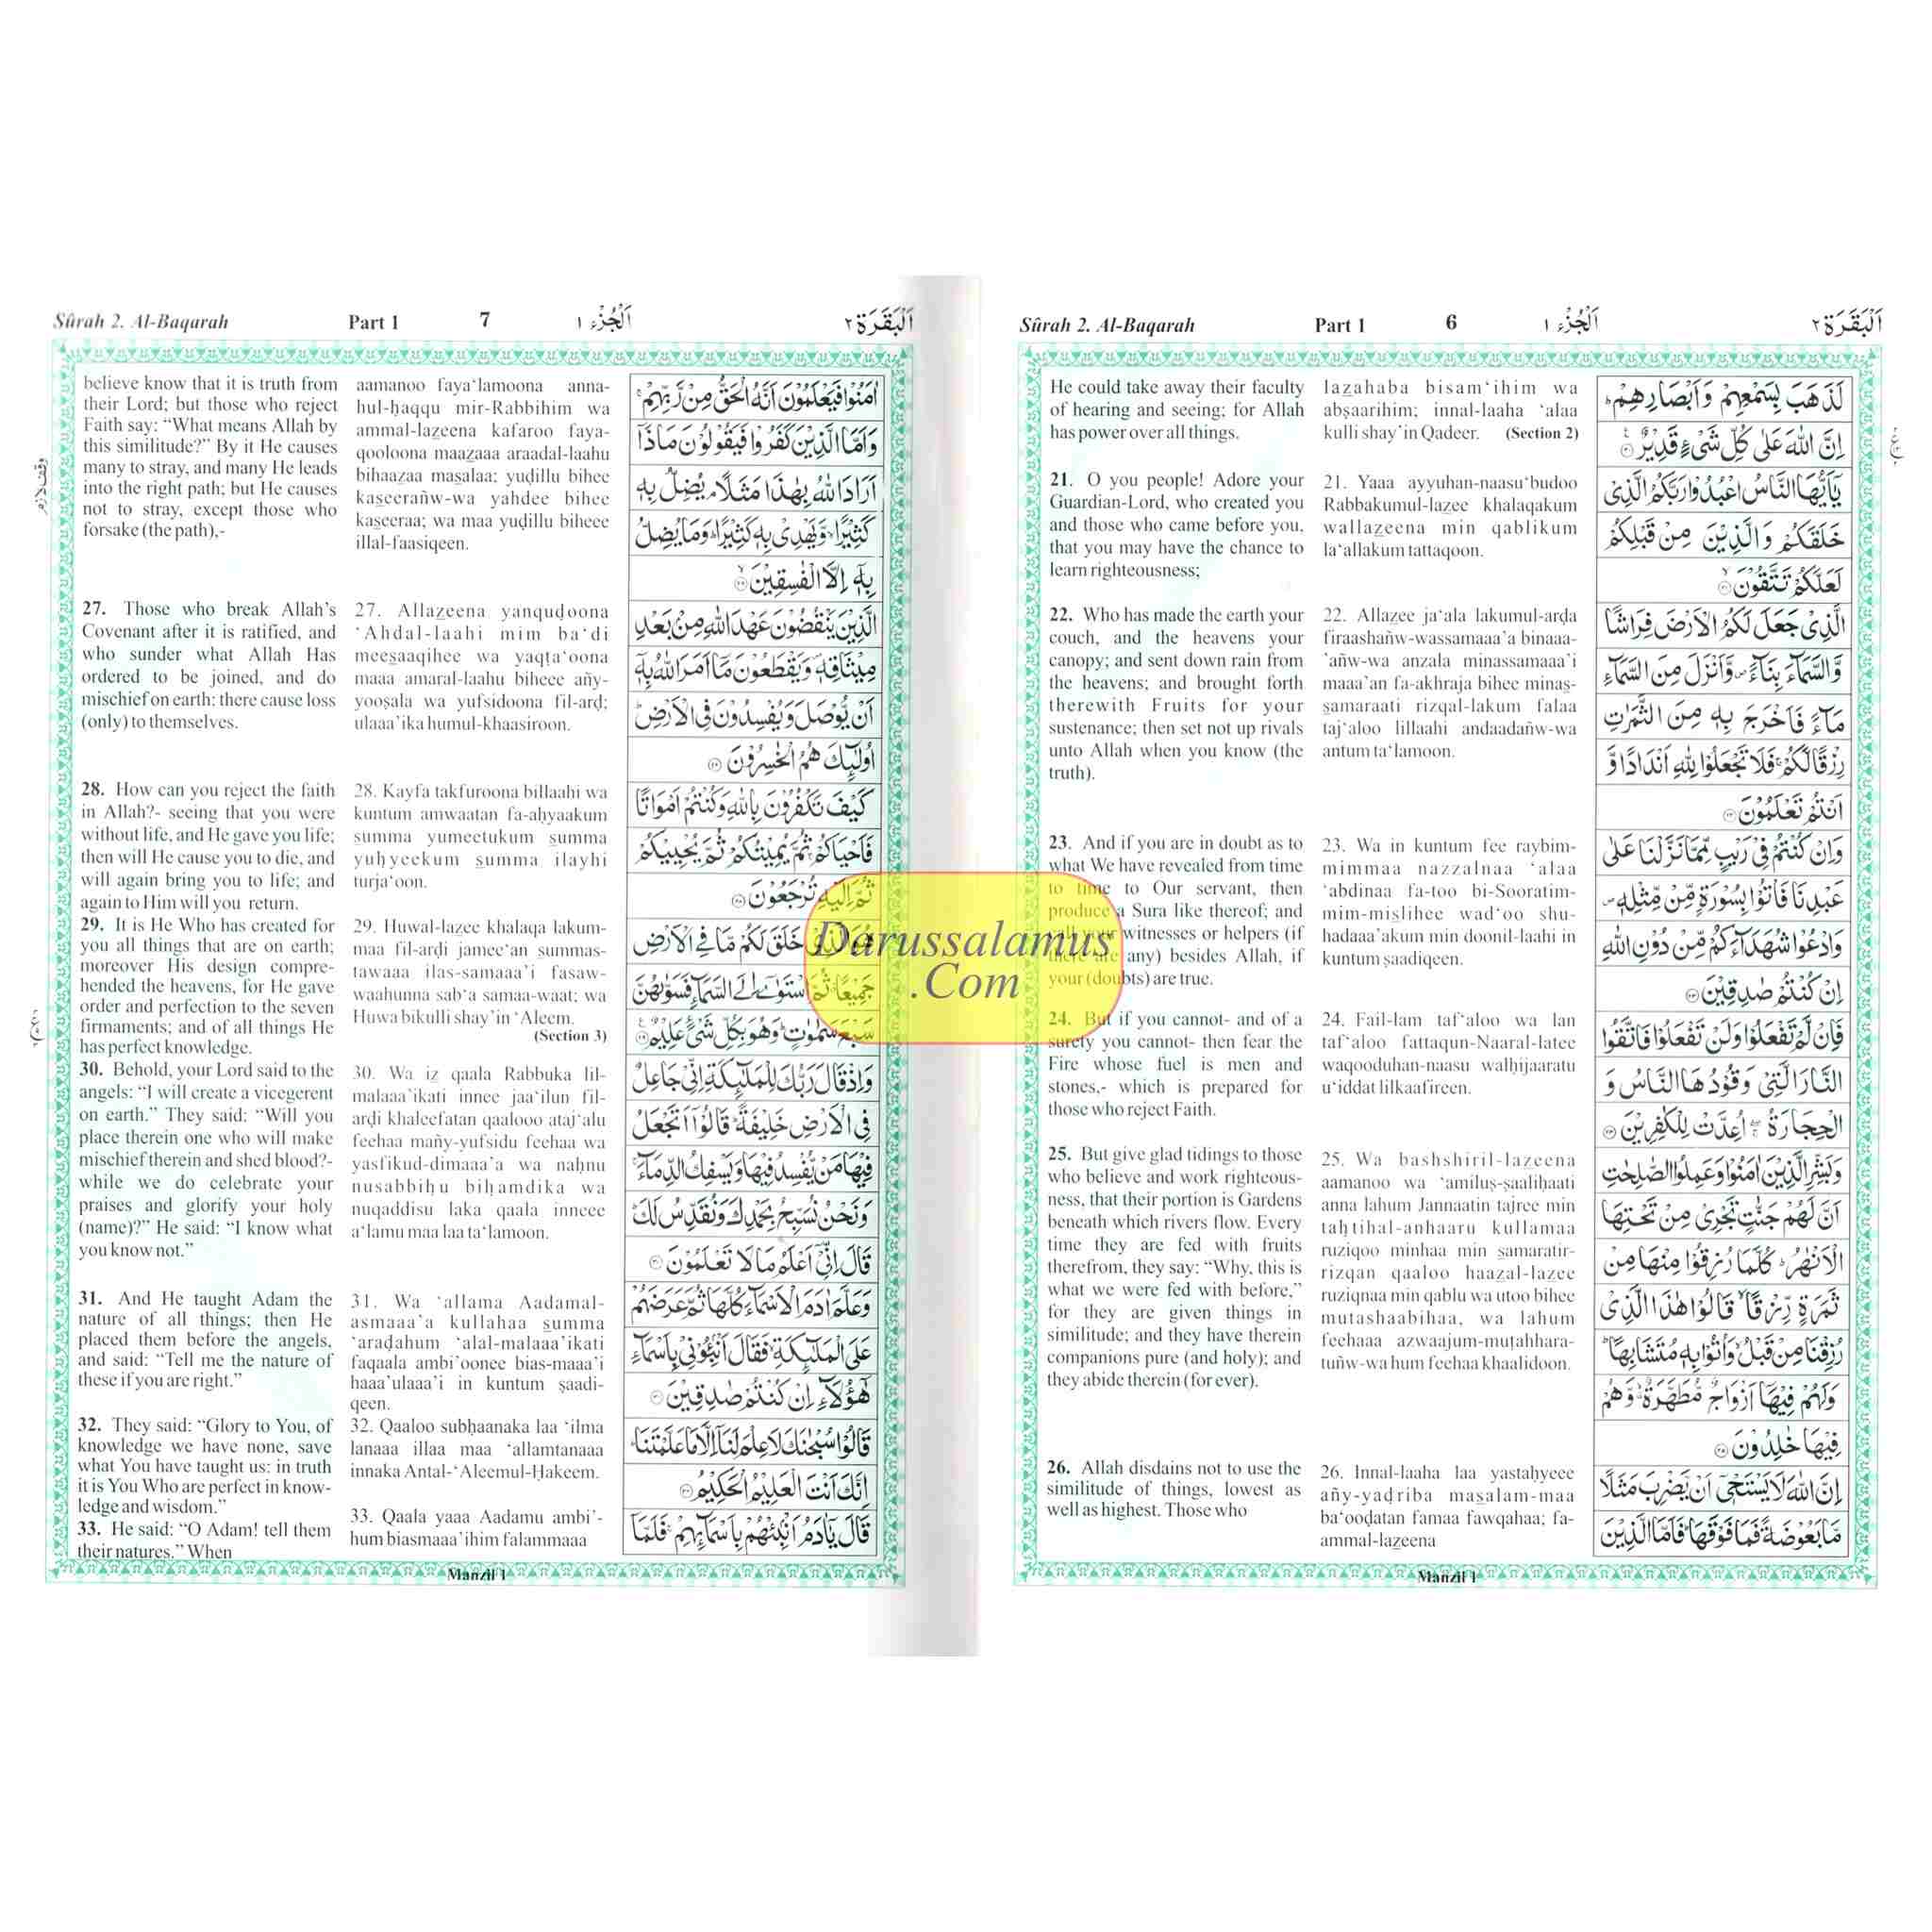 Sûrah 2. Al-Baqarah Part 1 6 اَلْجُزْء ١ اَلْبَقَرَة ٢
He could take away their faculty
of hearing and seeing; for Allah
has power over all things.
21. O you people! Adore your
Guardian-Lord, who created you
and those who came before you,
that you may have the chance to
learn righteousness;
22. Who has made the earth your
couch, and the heavens your
canopy; and sent down rain from
the heavens; and brought forth
therewith Fruits for your
sustenance; then set not up rivals
unto Allah when you know (the
truth).
23. And if you are in doubt as to
what We have revealed from time
to time to Our servant, then
produce a Sura like thereof; and
call your witnesses or helpers (if
there are any) besides Allah, if
your (doubts) are true.
24. But if you cannot- and of a
surety you cannot- then fear the
Fire whose fuel is men and
stones,- which is prepared for
those who reject Faith.
25. But give glad tidings to those
who believe and work righteous-
ness, that their portion is Gardens
beneath which rivers flow. Every
time they are fed with fruits
therefrom, they say: “Why, this is
what we were fed with before,”
for they are given things in
similitude; and they have therein
companions pure (and holy); and
they abide therein (for ever).
26. Allah disdains not to use the
similitude of things, lowest as
well as highest. Those who
lazahaba bisam‘ihim wa
abṣaarihim; innal-laaha ‘alaa
kulli shay’in Qadeer. (Section 2)
21. Yaaa ayyuhan-naasu‘budoo
Rabbakumul-lazee khalaqakum
wallazeena min qablikum
la‘allakum tattaqoon.
22. Allazee ja‘ala lakumul-arḍa
firaashañw-wassamaaa’a binaaa-
’añw-wa anzala minassamaaa’i
maaa’an fa-akhraja bihee minaṣ-
samaraati rizqal-lakum falaa
taj‘aloo lillaahi andaadañw-wa
antum ta‘lamoon.
23. Wa in kuntum fee raybim-
mimmaa nazzalnaa ‘alaa
‘abdinaa fa-too bi-Sooratim-
mim-mislihee wad‘oo shu-
hadaaa’akum min doonil-laahi in
kuntum ṣaadiqeen.
24. Fail-lam taf‘aloo wa lan
taf‘aloo fattaqun-Naaral-latee
waqooduhan-naasu walḥijaaratu
u‘iddat lilkaafireen.
25. Wa bashshiril-lazeena
aamanoo wa ‘amiluṣ-ṣaaliḥaati
anna lahum Jannaatin tajree min
taḥtihal-anhaaru kullamaa
ruziqoo minhaa min samaratir-
rizqan qaaloo haazal-lazee
ruziqnaa min qablu wa utoo bihee
mutashaabihaa, wa lahum
feehaaa azwaajum-muṭahhara-
tuñw-wa hum feehaa khaalidoon.
26. Innal-laaha laa yastaḥyeee
añy-yaḍriba masalam-maa
ba‘ooḍatan famaa fawqahaa; fa-
ammal-lazeena
لَذَهَبَ بِسَمْعِهِمْ وَاَبْصَارِهِمْ
اِنَّ اللّٰهَ عَلٰى كُلِّ شَىْءٍ قَدِيْرٌ ۲۰
يٰۤاَيُّهَا النَّاسُ اعْبُدُوْا رَبَّكُمُ الَّذِىْ
خَلَقَكُمْ وَالَّذِيْنَ مِنْ قَبْلِكُمْ
لَعَلَّكُمْ تَتَّقُوْنَ ۲۱
الَّذِىْ جَعَلَ لَكُمُ الْاَرْضَ فِرَاشًا
وَّالسَّمَآءَ بِنَآءً وَّاَنْزَلَ مِنَ السَّمَآءِ
مَآءً فَاَخْرَجَ بِهٖ مِنَ الثَّمَرٰتِ
رِزْقًا لَّكُمْ فَلَا تَجْعَلُوْا لِلّٰهِ اَنْدَادًا وَّ
اَنْتُمْ تَعْلَمُوْنَ ۲۲
وَاِنْ كُنْتُمْ فِىْ رَيْبٍ مِّمَّا نَزَّلْنَا عَلٰى
عَبْدِنَا فَاْتُوْا بِسُوْرَةٍ مِّنْ مِّثْلِهٖ
وَادْعُوْا شُهَدَآءَكُمْ مِّنْ دُوْنِ اللّٰهِ
اِنْ كُنْتُمْ صٰدِقِيْنَ ۲۳
فَاِنْ لَّمْ تَفْعَلُوْا وَلَنْ تَفْعَلُوْا فَاتَّقُوا
النَّارَ الَّتِىْ وَقُوْدُهَا النَّاسُ وَ
الْحِجَارَةُ اُعِدَّتْ لِلْكٰفِرِيْنَ ۲۴
وَبَشِّرِ الَّذِيْنَ اٰمَنُوْا وَعَمِلُوا الصّٰلِحٰتِ
اَنَّ لَهُمْ جَنّٰتٍ تَجْرِىْ مِنْ تَحْتِهَا
الْاَنْهٰرُ كُلَّمَا رُزِقُوْا مِنْهَا مِنْ
ثَمَرَةٍ رِّزْقًا قَالُوْا هٰذَا الَّذِىْ
رُزِقْنَا مِنْ قَبْلُ وَاُتُوْا بِهٖ مُتَشَابِهًا
وَلَهُمْ فِيْهَاۤ اَزْوَاجٌ مُّطَهَّرَةٌ وَّهُمْ
فِيْهَا خٰلِدُوْنَ ۲۵
اِنَّ اللّٰهَ لَا يَسْتَحْىٖۤ اَنْ يَّضْرِبَ مَثَلًا
مَّا بَعُوْضَةً فَمَا فَوْقَهَا فَاَمَّا الَّذِيْنَ
Manzil 1
Sûrah 2. Al-Baqarah Part 1 7 اَلْجُزْء ١ اَلْبَقَرَة ٢
وقف لازم
believe know that it is truth from
their Lord; but those who reject
Faith say: “What means Allah by
this similitude?” By it He causes
many to stray, and many He leads
into the right path; but He causes
not to stray, except those who
forsake (the path),-
27. Those who break Allah’s
Covenant after it is ratified, and
who sunder what Allah Has
ordered to be joined, and do
mischief on earth: there cause loss
(only) to themselves.
28. How can you reject the faith
in Allah?- seeing that you were
without life, and He gave you life;
then will He cause you to die, and
will again bring you to life; and
again to Him will you return.
29. It is He Who has created for
you all things that are on earth;
moreover His design compre-
hended the heavens, for He gave
order and perfection to the seven
firmaments; and of all things He
has perfect knowledge.
30. Behold, your Lord said to the
angels: “I will create a vicegerent
on earth.” They said: “Will you
place therein one who will make
mischief therein and shed blood?-
while we do celebrate your
praises and glorify your holy
(name)?” He said: “I know what
you know not.”
31. And He taught Adam the
nature of all things; then He
placed them before the angels,
and said: “Tell me the nature of
these if you are right.”
32. They said: “Glory to You, of
knowledge we have none, save
what You have taught us: in truth
it is You Who are perfect in know-
ledge and wisdom.”
33. He said: “O Adam! tell them
their natures.” When
aamanoo faya‘lamoona anna-
hul-ḥaqqu mir-Rabbihim wa
ammal-lazeena kafaroo faya-
qooloona maazaaa araadal-laahu
bihaazaa masalaa; yuḍillu bihee
kaseerañw-wa yahdee bihee
kaseeraa; wa maa yuḍillu biheee
illal-faasiqeen.
27. Allazeena yanquḍoona
‘Ahdal-laahi mim ba‘di
meesaaqihee wa yaqṭa‘oona
maaa amaral-laahu biheee añy-
yooṣala wa yufsidoona fil-arḍ;
ulaaa’ika humul-khaasiroon.
28. Kayfa takfuroona billaahi wa
kuntum amwaatan fa-aḥyaakum
summa yumeetukum summa
yuḥyeekum summa ilayhi
turja‘oon.
29. Huwal-lazee khalaqa lakum-
maa fil-arḍi jamee‘an summas-
tawaaa ilas-samaaa’i fasaw-
waahunna sab‘a samaa-waat; wa
Huwa bikulli shay’in ‘Aleem.
(Section 3)
30. Wa iz qaala Rabbuka lil-
malaaa’ikati innee jaa‘ilun fil-
arḍi khaleefatan qaalooo ataj‘alu
feehaa mañy-yufsidu feehaa wa
yasfikud-dimaaa’a wa naḥnu
nusabbiḥu biḥamdika wa
nuqaddisu laka qaala inneee
a‘lamu maa laa ta‘lamoon.
31. Wa ‘allama Aadamal-
asmaaa’a kullahaa summa
‘araḍahum ‘alal-malaaa’ikati
faqaala ambi’oonee bias-maaa’i
haaa’ulaaa’i in kuntum ṣaadi-
qeen.
32. Qaaloo subḥaanaka laa ‘ilma
lanaaa illaa maa ‘allamtanaaa
innaka Antal-‘Aleemul-Ḥakeem.
33. Qaala yaaa Aadamu ambi’-
hum biasmaaa’ihim falammaaa
اٰمَنُوْا فَيَعْلَمُوْنَ اَنَّهُ الْحَقُّ مِنْ رَّبِّهِمْ
وَاَمَّا الَّذِيْنَ كَفَرُوْا فَيَقُوْلُوْنَ مَاذَاۤ
اَرَادَ اللّٰهُ بِهٰذَا مَثَلًا يُضِلُّ بِهٖ
كَثِيْرًا وَّيَهْدِىْ بِهٖ كَثِيْرًا وَمَا يُضِلُّ
بِهٖۤ اِلَّا الْفٰسِقِيْنَ ۲۶
الَّذِيْنَ يَنْقُضُوْنَ عَهْدَ اللّٰهِ مِنْ بَعْدِ
مِيْثَاقِهٖ وَيَقْطَعُوْنَ مَاۤ اَمَرَ اللّٰهُ بِهٖۤ
اَنْ يُّوْصَلَ وَيُفْسِدُوْنَ فِى الْاَرْضِ
اُولٰٓئِكَ هُمُ الْخٰسِرُوْنَ ۲۷
كَيْفَ تَكْفُرُوْنَ بِاللّٰهِ وَكُنْتُمْ اَمْوَاتًا
فَاَحْيَاكُمْ ثُمَّ يُمِيْتُكُمْ ثُمَّ يُحْيِيْكُمْ
ثُمَّ اِلَيْهِ تُرْجَعُوْنَ ۲۸
هُوَ الَّذِىْ خَلَقَ لَكُمْ مَّا فِى الْاَرْضِ
جَمِيْعًا ثُمَّ اسْتَوٰۤى اِلَى السَّمَآءِ فَسَوّٰىهُنَّ
سَبْعَ سَمٰوٰتٍ وَهُوَ بِكُلِّ شَىْءٍ عَلِيْمٌ ۲۹
وَاِذْ قَالَ رَبُّكَ لِلْمَلٰٓئِكَةِ اِنِّىْ جَاعِلٌ
فِى الْاَرْضِ خَلِيْفَةً قَالُوْۤا اَتَجْعَلُ
فِيْهَا مَنْ يُّفْسِدُ فِيْهَا وَيَسْفِكُ الدِّمَآءَ
وَنَحْنُ نُسَبِّحُ بِحَمْدِكَ وَنُقَدِّسُ لَكَ
قَالَ اِنِّىْۤ اَعْلَمُ مَا لَا تَعْلَمُوْنَ ۳۰
وَعَلَّمَ اٰدَمَ الْاَسْمَآءَ كُلَّهَا ثُمَّ عَرَضَهُمْ
عَلَى الْمَلٰٓئِكَةِ فَقَالَ اَنْۢبِـُٔوْنِىْ بِاَسْمَآءِ
هٰۤؤُلَآءِ اِنْ كُنْتُمْ صٰدِقِيْنَ ۳۱
قَالُوْا سُبْحٰنَكَ لَا عِلْمَ لَنَاۤ اِلَّا مَا عَلَّمْتَنَا
اِنَّكَ اَنْتَ الْعَلِيْمُ الْحَكِيْمُ ۳۲
قَالَ يٰۤاٰدَمُ اَنْۢبِئْهُمْ بِاَسْمَآئِهِمْ فَلَمَّاۤ
Manzil 1
Darussalamus
.Com